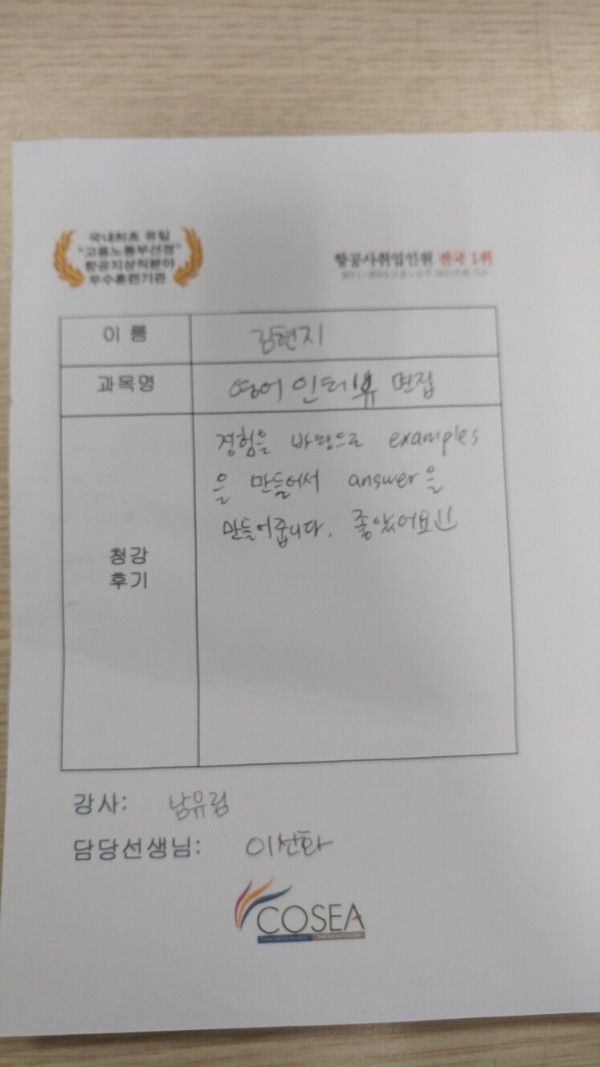 국내최초 유일
"고용노동부선정"
항공지상직분야
우수훈련기관
항공사취업인원 전국 1위
이 름
김현지
과목명
영어 인터뷰 면접
경험을 바탕으로 examples
을 만들어서 answer을
만들어줍니다. 좋았어요!!
청강
후기
강사: 남유림
담당선생님: 이선화
COSEA